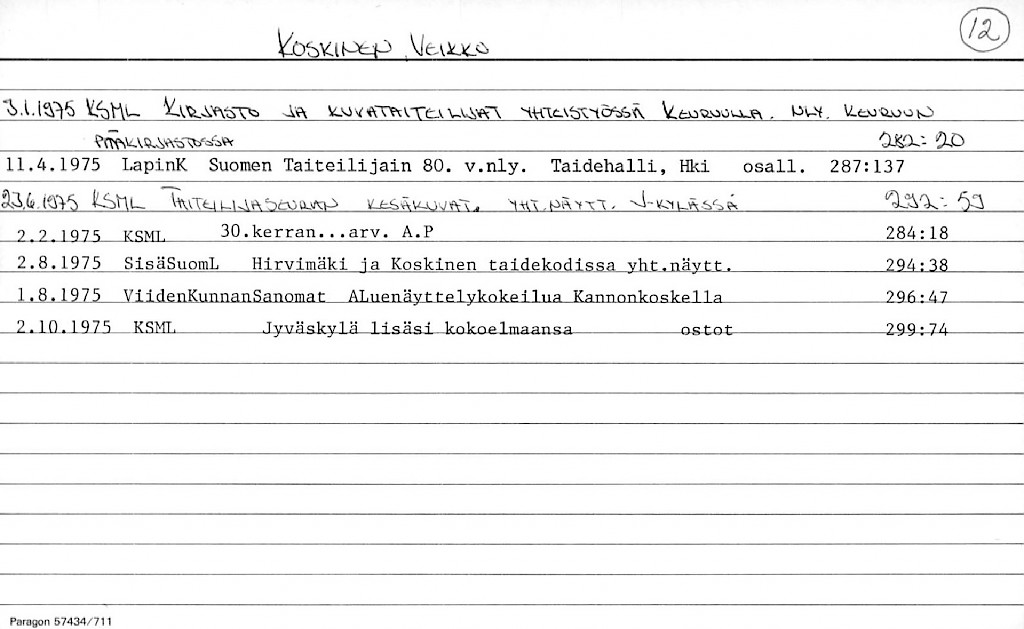 KOSKINEN, VEIKKO
12
3.1.1975 KSML KIRJASTO JA KUVATAITEILIJAT YHTEISTYÖSSÄ KEURUULLA. NLY. KEURUUN
PÄÄKIRJASTOSSA 282:20
11.4.1975 LapinK Suomen Taiteilijain 80. v.nly. Taidehalli, Hki osall. 287:137
23.6.1975 KSML TAITEILIJASEURAN KESÄKUVAT. YHT.NÄYTT. J-KYLÄSSÄ 292:59
2.2.1975 KSML 30.kerran...arv. A.P 284:18
2.8.1975 SisäSuomL Hirvimäki ja Koskinen taidekodissa yht.näytt. 294:38
1.8.1975 ViidenKunnanSanomat ALuenäyttelykokeilua Kannonkoskella 296:47
2.10.1975 KSML Jyväskylä lisäsi kokoelmaansa ostot 299:74
Paragon 57434/711